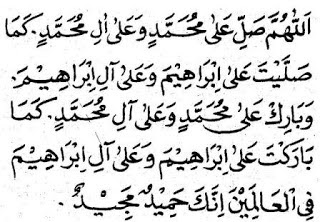 اَللّٰهُمَّ صَلِّ عَلٰى مُحَمَّدٍ وَعَلٰى اٰلِ مُحَمَّدٍ. كَمَا
صَلَّيْتَ عَلٰى اِبْرَاهِيْمَ وَعَلٰى آلِ اِبْرَاهِيْمَ.
وَبَارِكْ عَلٰى مُحَمَّدٍ وَعَلٰى آلِ مُحَمَّدٍ. كَمَا
بَارَكْتَ عَلٰى اِبْرَاهِيْمَ وَعَلٰى آلِ اِبْرَاهِيْمَ
فِى الْعَالَمِيْنَ اِنَّكَ حَمِيْدٌ مَجِيْدٌ.